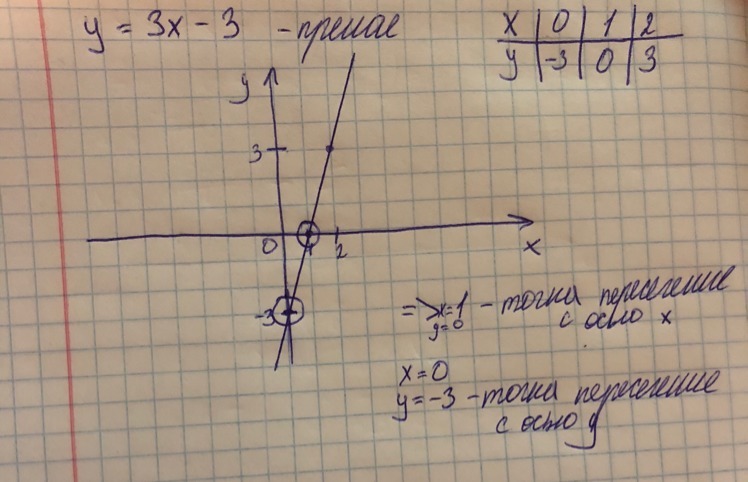 y = 3x - 3 - прямая
x 0 1 2
y -3 0 3
y
3
0 1 2
x
-3
=> x=1 - точка пересечение
y=0 с осью x
x=0
y=-3 - точка пересечение
с осью y